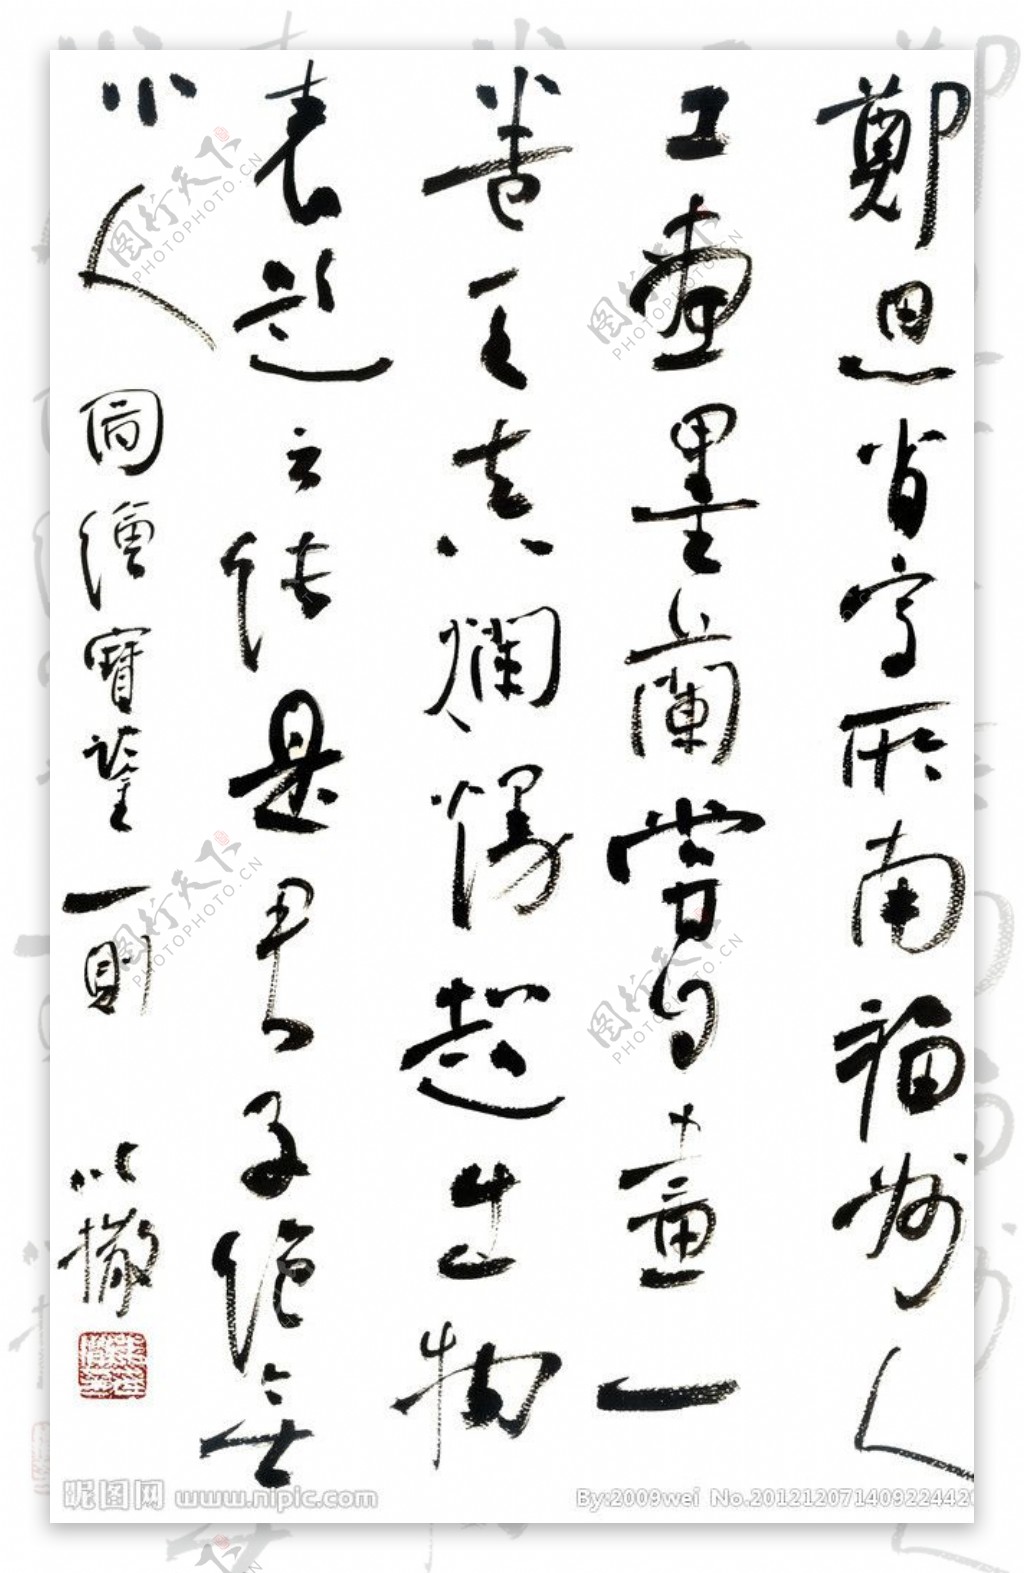 鄭思肖字所南福州人
工畫墨蘭嘗自畫一
卷天真爛熳超出物
表題云純是君子絕無
小人
圖繪寶鑒一則
以撒
昵图网 www.nipic.com
By:2009wei No.20121207140922442
图行天下 PHOTOPHOTO.CN